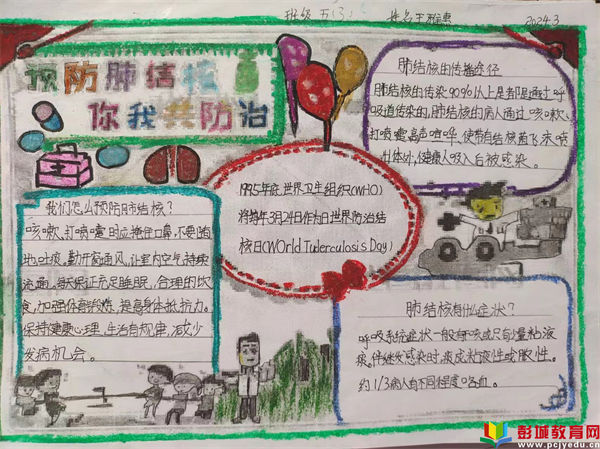 班级 五(3) 姓名王雅惠 2024.3
预防肺结核
你我共防治
肺结核的传播途径
肺结核的传染90%以上是都是通过呼
吸道传染的,肺结核的病人通过咳嗽、
打喷嚏,高声喧哗,使带有结核菌飞沫喷
出体外,健康人吸入后被感染。
1995年底,世界卫生组织(WHO)
将每年3月24日作为世界防治结
核日(World Tuberculosis Day)
我们怎么预防肺结核?
咳嗽、打喷嚏时应掩住口鼻,不要随
地吐痰,勤开窗通风,让室内空气持续
流通,每天保证充足睡眠,合理的饮
食,加强体育锻炼,提高身体抵抗力。
保持健康心理,生活有规律,减少
发病机会。
肺结核有什么症状?
呼吸系统症状一般有咳或只有少量粘液
痰。伴继发感染时,痰成粘液性或脓性。
约1/3病人有不同程度咯血。
彭城教育网
www.pcjyedu.cn